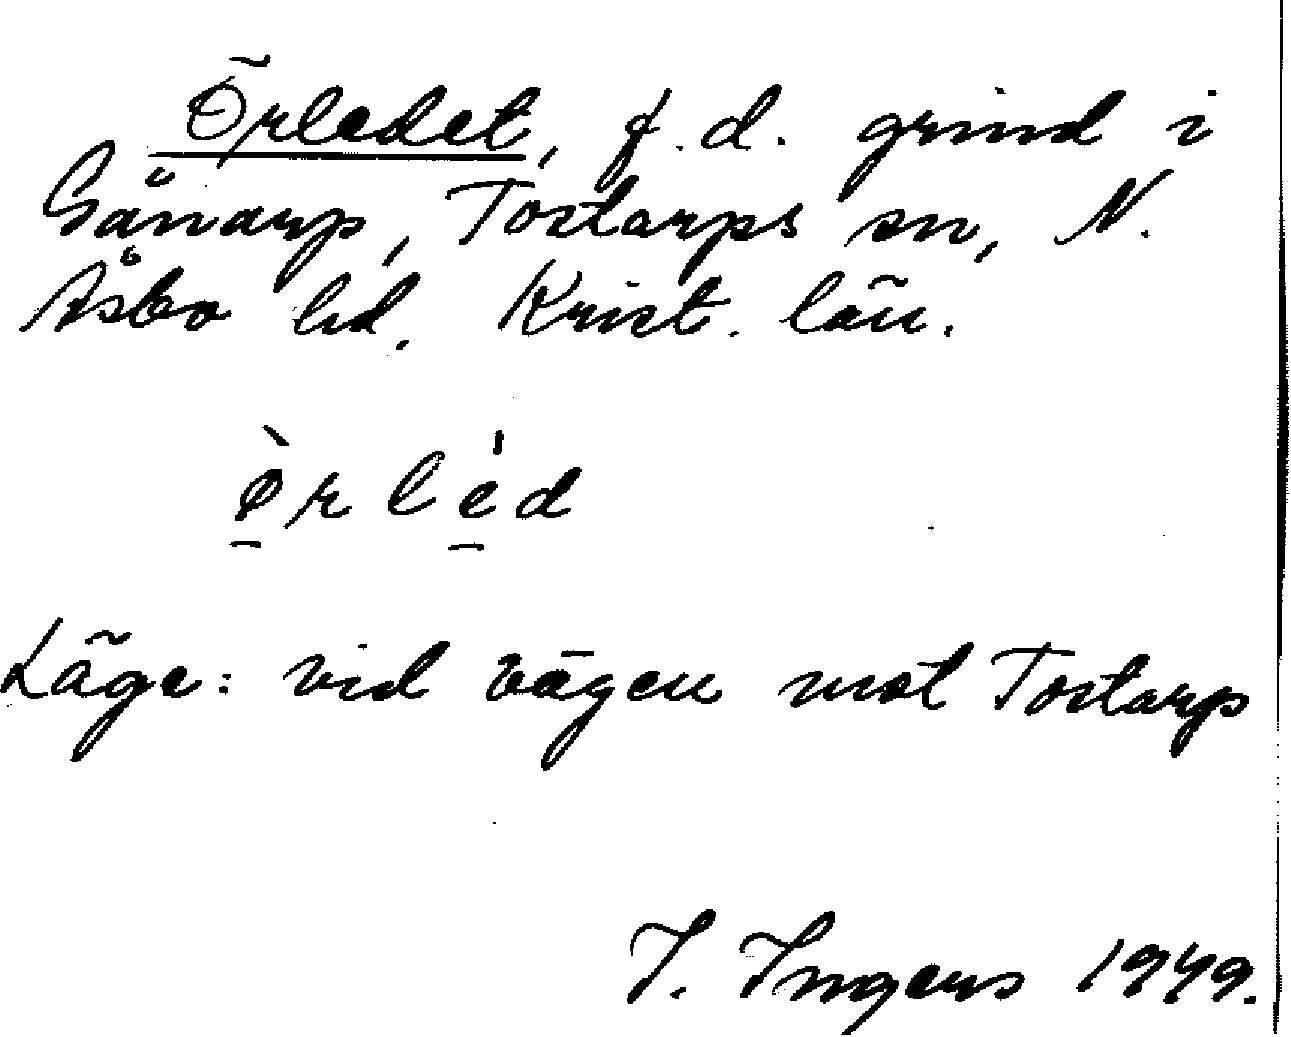 Örledet, f.d. grind i
Gånarp, Tostarps sn, N.
Åsbo hd. Krist. län.
ø̱̀r le̱̍d
Läge: vid vägen mot Tostarp
I. Ingers 1949.